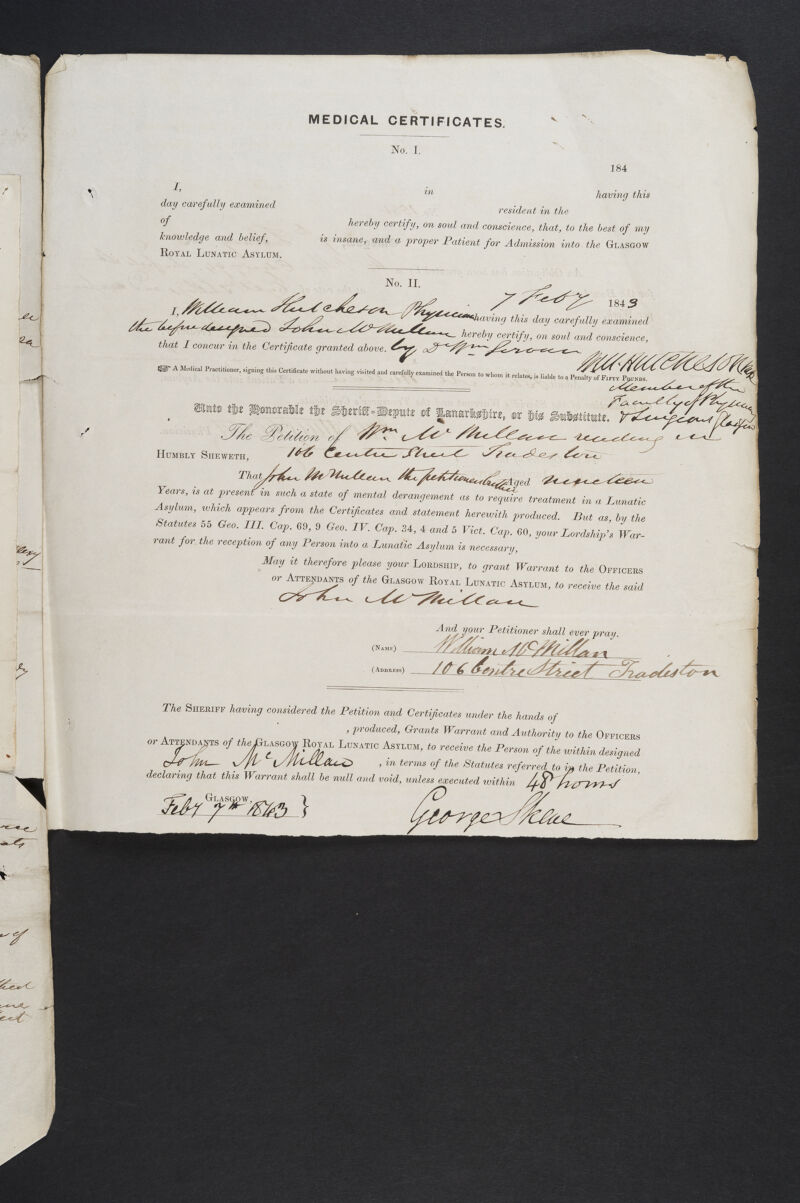 MEDICAL CERTIFICATES.
No. I.
184
I, in having this
day carefully examined resident in the
of hereby certify, on soul and conscience, that, to the best of my
knowledge and belief, is insane, and a proper Patient for Admission into the GLASGOW
ROYAL LUNATIC ASYLUM.
No. II.
7 Feby 1843
I, William Hutcheson Physician having this day carefully examined
the before designed John McMillan hereby certify, on soul and conscience,
that I concur in the Certificate granted above. by Dr Wm Girvan
Wm. Hutcheson
☞ A Medical Practitioner, signing this Certificate without having visited and carefully examined the Person to whom it relates, is liable to a Penalty of FIFTY POUNDS.
Member of the
Faculty of Physicians
& Surgeons Glasgow
Unto the Honorable the Sheriff-Depute of Lanarkshire, or his Substitute.
The Petition of Wm. McMillan residing in
HUMBLY SHEWETH, 106 Centre Street Tradeston
That John McMillan the petitioners brother Aged nineteen
Years, is at present in such a state of mental derangement as to require treatment in a Lunatic
Asylum, which appears from the Certificates and statement herewith produced. But as, by the
Statutes 55 Geo. III. Cap. 69, 9 Geo. IV. Cap. 34, 4 and 5 Vict. Cap. 60, your Lordship's War-
rant for the reception of any Person into a Lunatic Asylum is necessary,
May it therefore please your LORDSHIP, to grant Warrant to the OFFICERS
or ATTENDANTS of the GLASGOW ROYAL LUNATIC ASYLUM, to receive the said
John McMillan
And your Petitioner shall ever pray.
(NAME) William McMillan
(ADDRESS) 106 Centre Street Tradeston
The SHERIFF having considered the Petition and Certificates under the hands of
, produced, Grants Warrant and Authority to the OFFICERS
or ATTENDANTS of the GLASGOW ROYAL LUNATIC ASYLUM, to receive the Person of the within designed
John McMillan , in terms of the Statutes referred to in the Petition,
declaring that this Warrant shall be null and void, unless executed within 48 hours
GLASGOW,
Feby 7th 1843 }
George Skene